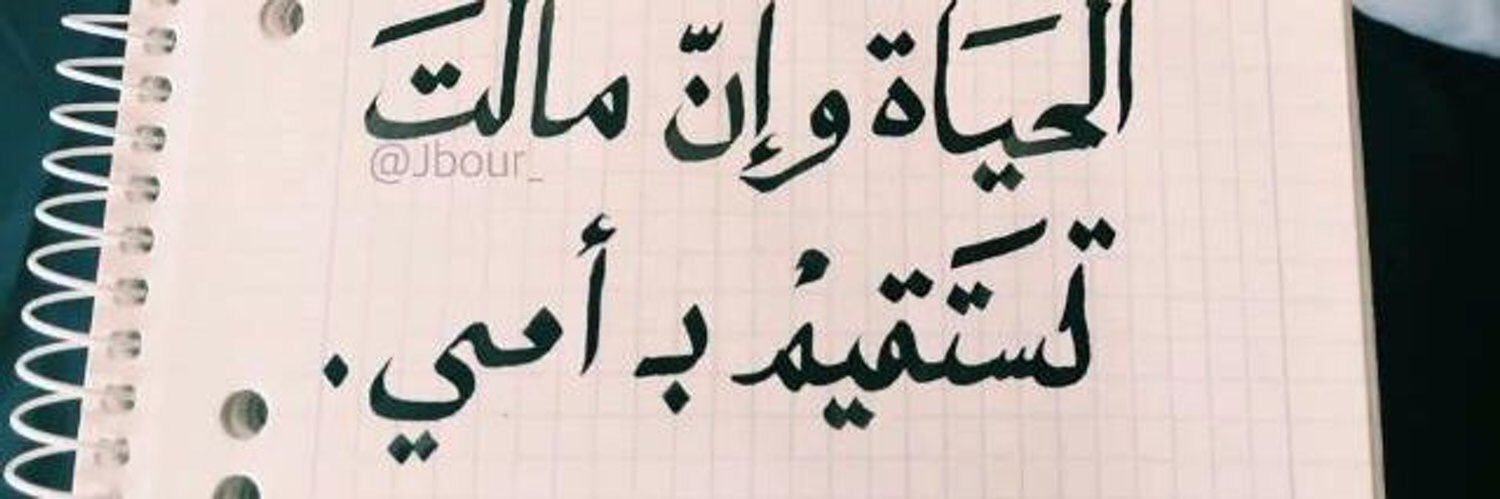 الحَيَاة وإنّ مالتَ
@Jbour_
تستَقيمْ بـ أمي .